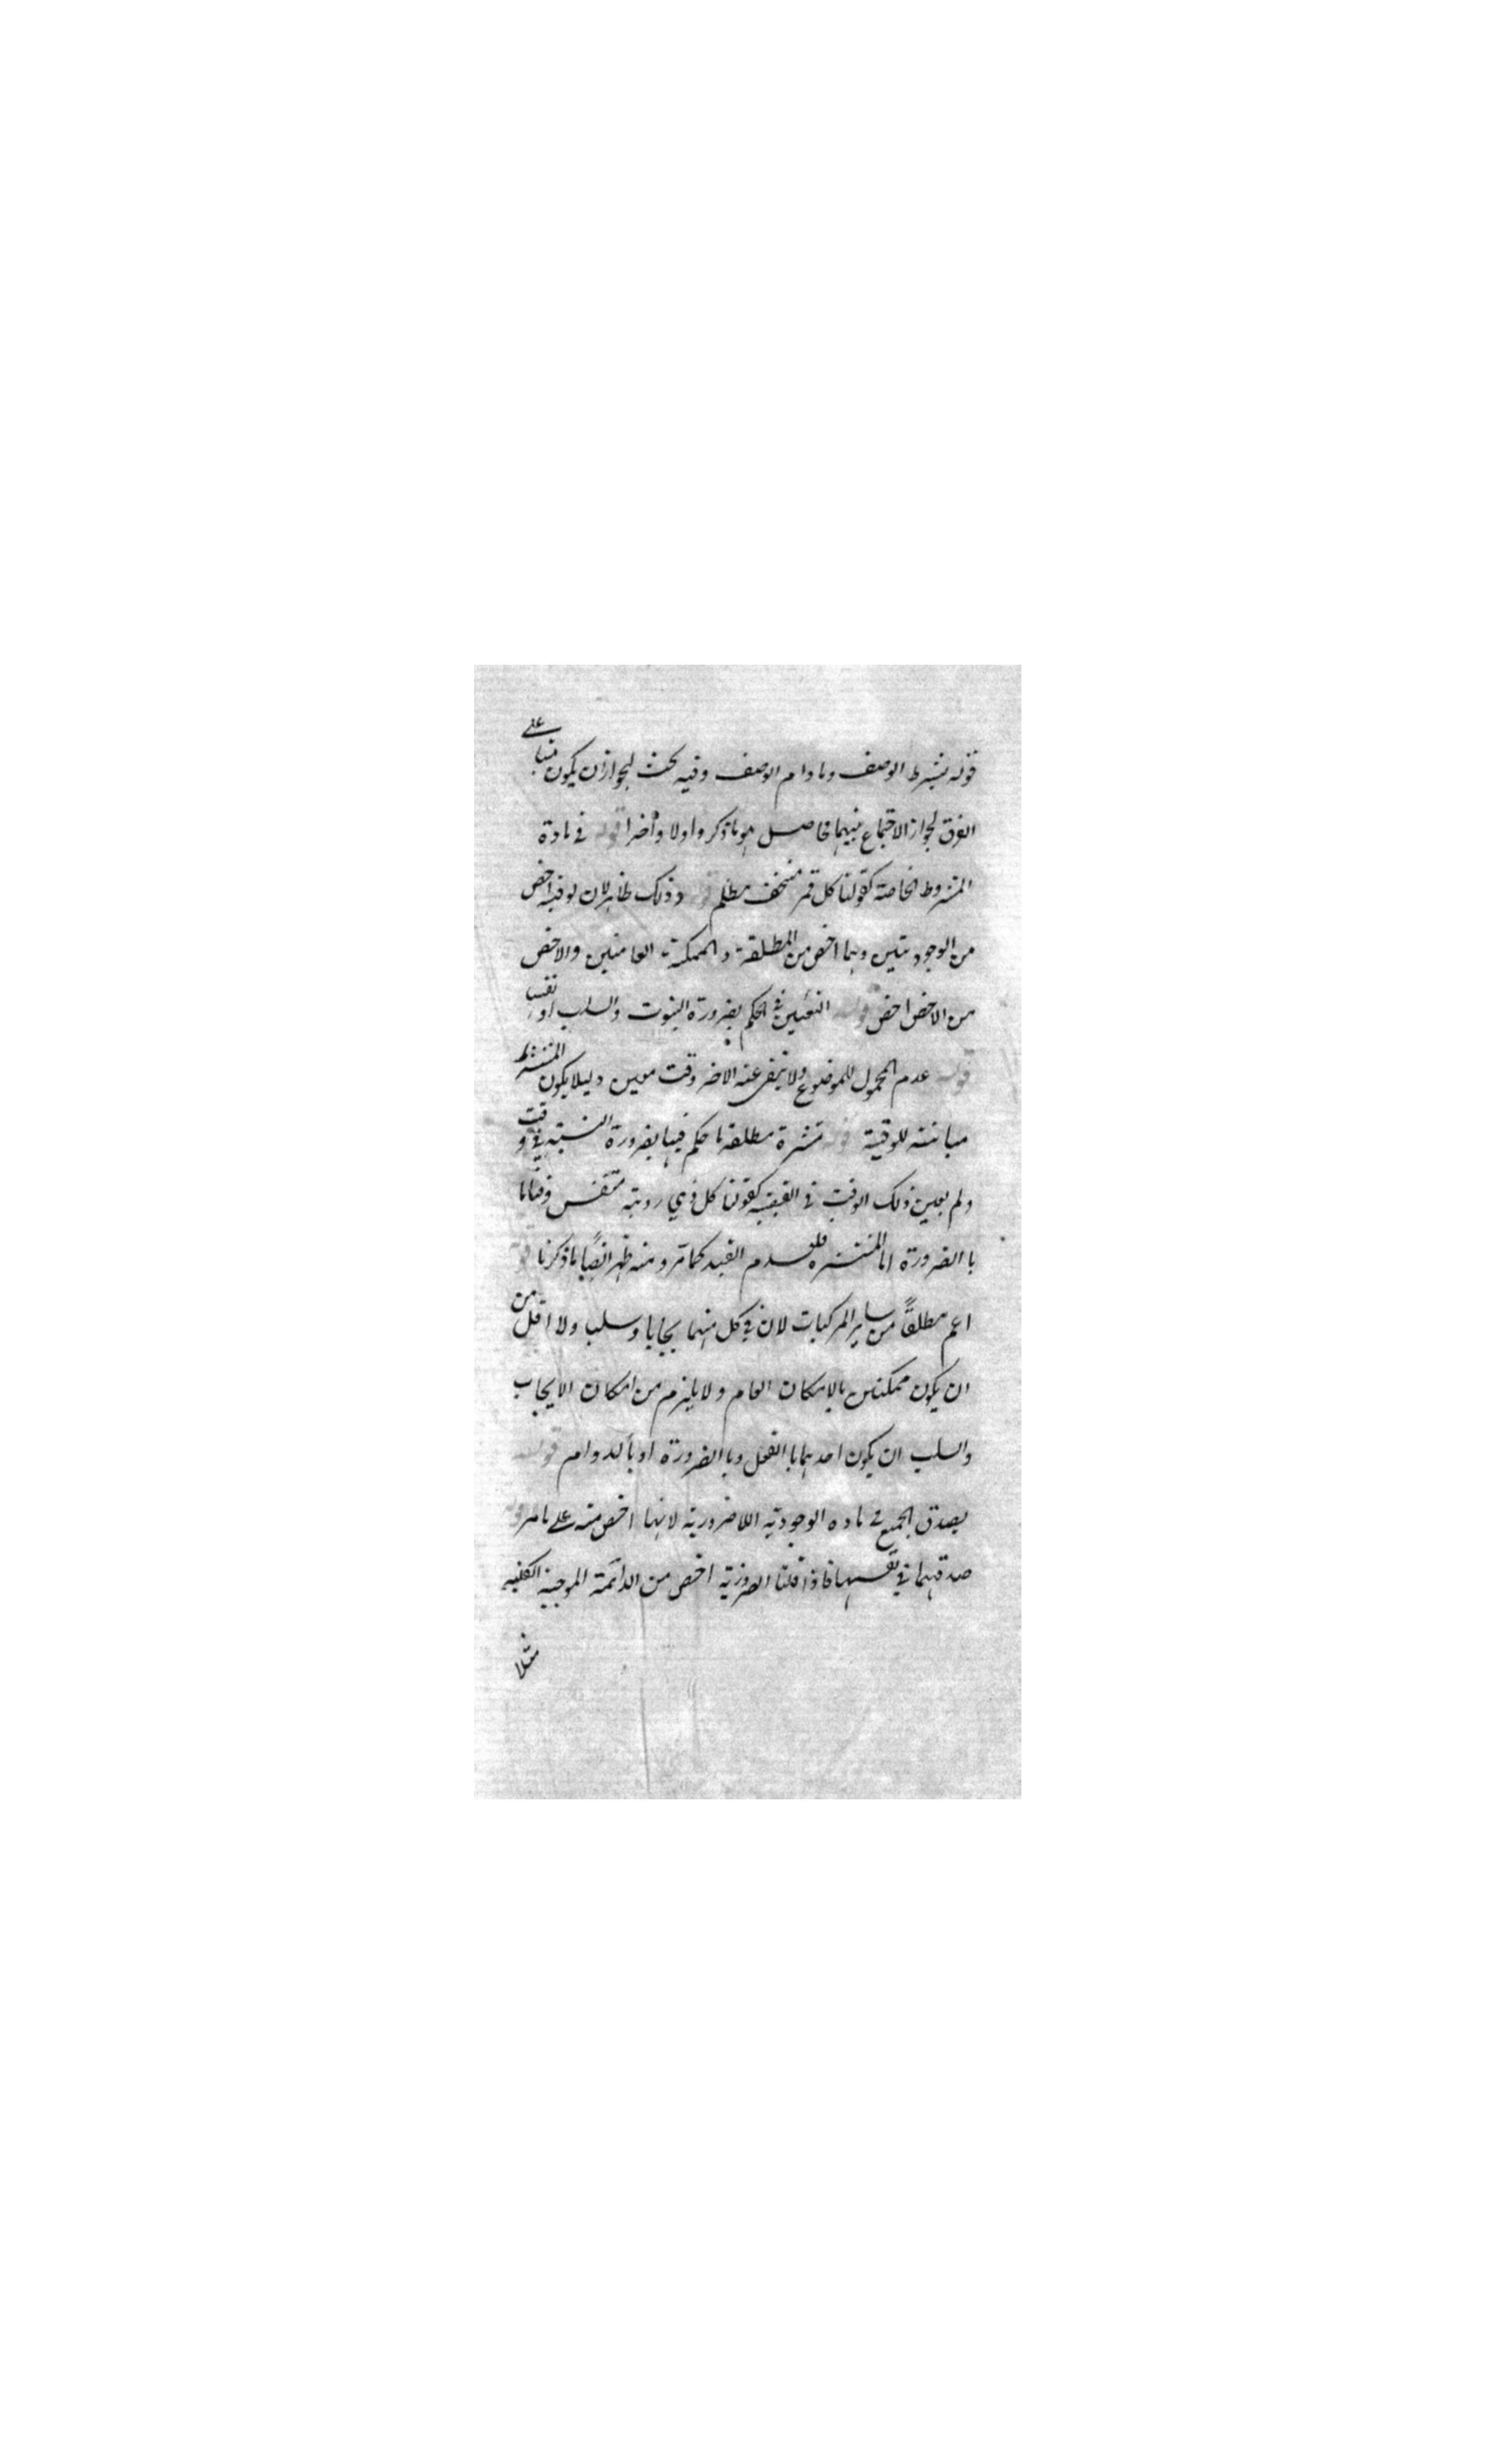 قوله بشرط الوصف ومادام الوصف وفيه بحث لجواز ان يكون مبنيا على
الفرق لجواز الاجتماع بينهما فحاصل هو ما ذكر اولا وآخرا قوله في مادة
المشروطة الخاصة كقولنا كل قمر منخسف مظلم قوله وذلك ظاهر لان لوقتية اخص
من الوجوديتين وهما اخص من المطلقة والممكنة العامتين والاخص
من الاخص اخص قوله التعيين في الحكم بضرورة الثبوت والسلب او
قوله عدم المحمول للموضوع ولا ينفى عنه الاخر وقت معين وليلا يكون المنتشرة
مباينة للوقتية قوله منتشرة مطلقة ما حكم فيها بضرورة النسبة في وقت
ولم يعين ذلك الوقت في القضية كقولنا كل ذي روية متنفس وقتا ما
با الضرورة اما المنتشرة فلعدم القيد كما مر ومنه ظهر ايضًا ما ذكرنا قوله
اعم مطلقًا من ساير المركبات لان في كل منهما ايجابا وسلبا ولا اقل من
ان يكون ممكنتين بالامكان العام ولا يلزم من امكان الايجاب
والسلب ان يكون احدهما با الفعل وبا الضرورة او بالدوام قوله
يصدق الجميع في ماده الوجودية اللاضرورية لانها اخص منه على ما مر قوله
صدقهما في نفسهما فاذا قلنا الضرورية اخص من الدائمة الموجبة الكلية
مثلا